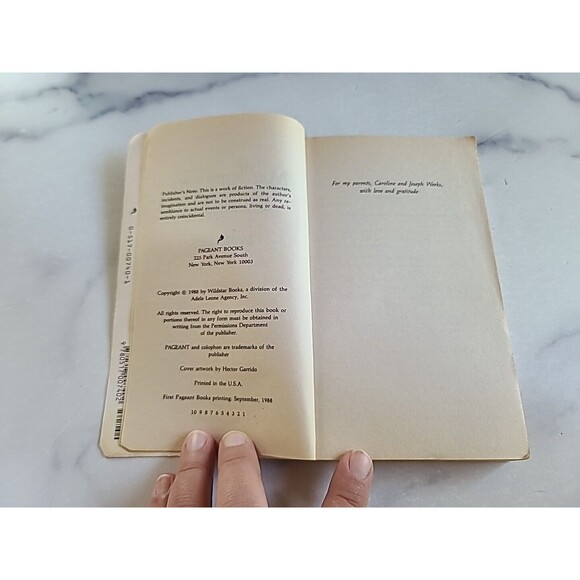 Publisher's Note: This is a work of fiction. The characters,
incidents, and dialogues are products of the author's
imagination and are not to be construed as real. Any re-
semblance to actual events or persons, living or dead, is
entirely coincidental.
PAGEANT BOOKS
225 Park Avenue South
New York, New York 10003
Copyright © 1988 by Wildstar Books, a division of the
Adele Leone Agency, Inc.
All rights reserved. The right to reproduce this book or
portions thereof in any form must be obtained in
writing from the Permissions Department
of the publisher.
PAGEANT and colophon are trademarks of the
publisher
Cover artwork by Hector Garrido
Printed in the U.S.A.
First Pageant Books printing: September, 1988
10 9 8 7 6 5 4 3 2 1
For my parents, Caroline and Joseph Weeks,
with love and gratitude
0-517-00740-1
9780517007402